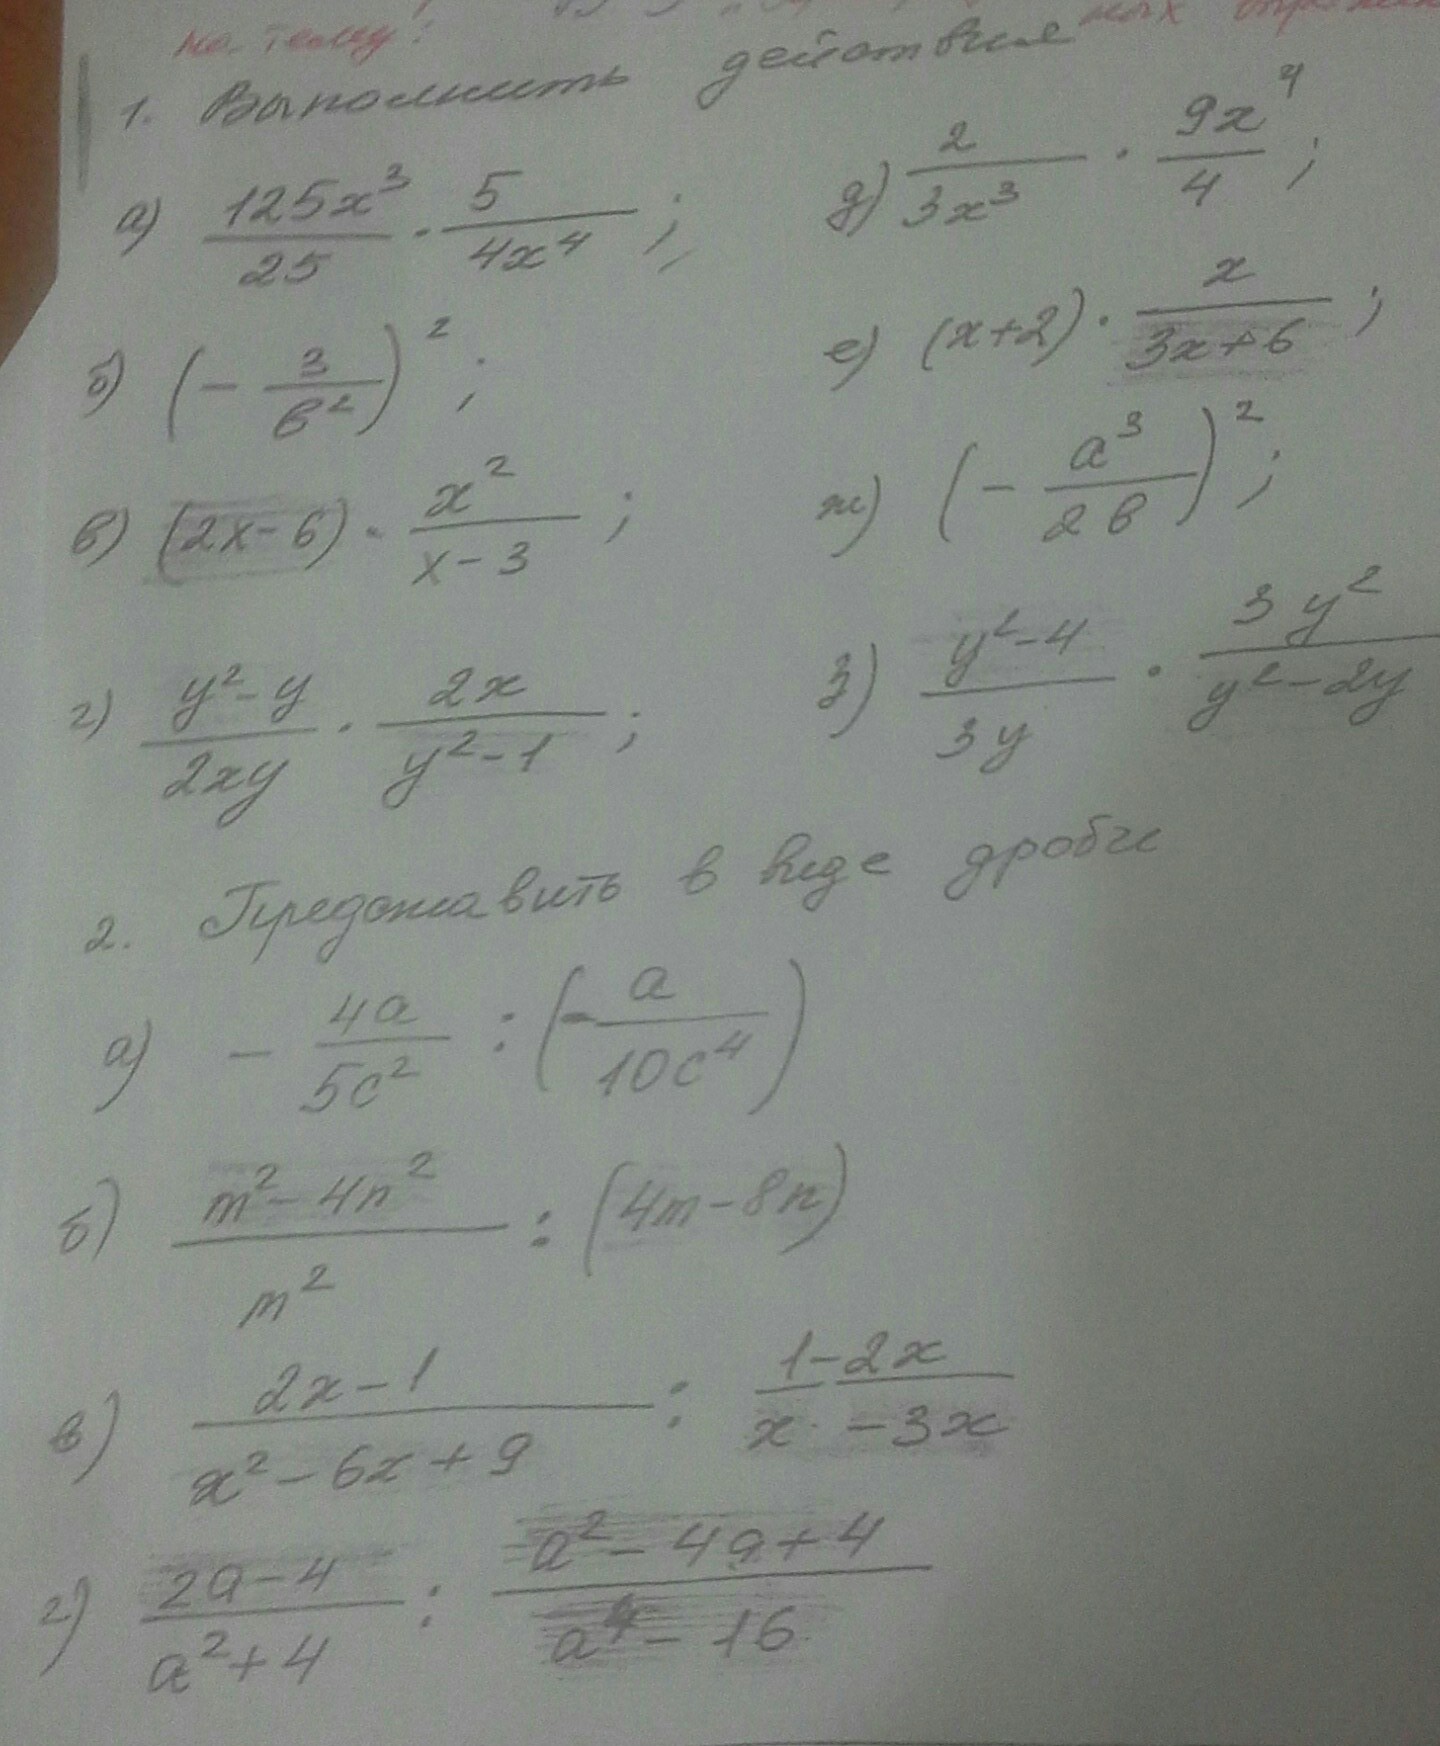 на тему:
1. Выполнить действия
а) \frac{125x^3}{25} · \frac{5}{4x^4};
д) \frac{2}{3x^3} · \frac{9x^4}{4};
б) (-\frac{3}{в^2})^2;
е) (x+2) · \frac{x}{3x+6};
в) (2x-6) · \frac{x^2}{x-3};
ж) (-\frac{a^3}{2в})^2;
г) \frac{y^2-y}{2xy} · \frac{2x}{y^2-1};
з) \frac{y^2-4}{3y} · \frac{3y^2}{y^2-2y}
2. Представить в виде дроби
а) -\frac{4a}{5c^2} : (-\frac{a}{10c^4})
б) \frac{m^2-4n^2}{m^2} : (4m-8n)
в) \frac{2x-1}{x^2-6x+9} : \frac{1-2x}{x -3x}
г) \frac{2a-4}{a^2+4} : \frac{a^2-4a+4}{a^4-16}